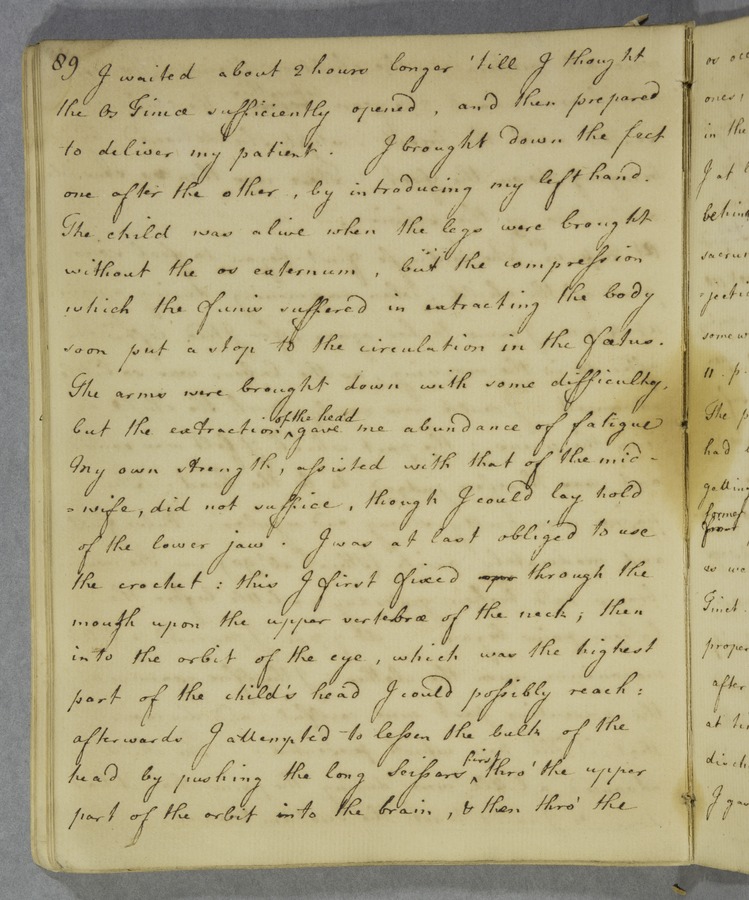 89 I waited about 2 hours longer 'till I thought
the Os Tincæ sufficiently opened, and then prepared
to deliver my patient. I brought down the feet
one after the other, by introducing my left hand.
The child was alive when the legs were brought
without the os externum, but the compression
which the funis suffered in extracting the body
soon put a stop to the circulation in the fœtus.
The arms were brought down with some difficulty,
but the extraction of the head gave me abundance of fatigue
My own strength, assisted with that of the mid-
=wife, did not suffice, though I could lay hold
of the lower jaw. I was at last obliged to use
the crochet: this I first fixed through the
mouth upon the upper vertebræ of the neck; then
into the orbit of the eye, which was the highest
part of the child's head I could possibly reach:
afterwards I attempted to lessen the bulk of the
head by pushing the long Scissars first thro' the upper
part of the orbit into the brain, & then thro' the
os
ones,
in the
I at
behind
sacrum
some w
11. p.
The p
had
getting
former
as we
Tincæ
proper
after
at
disch
I ga